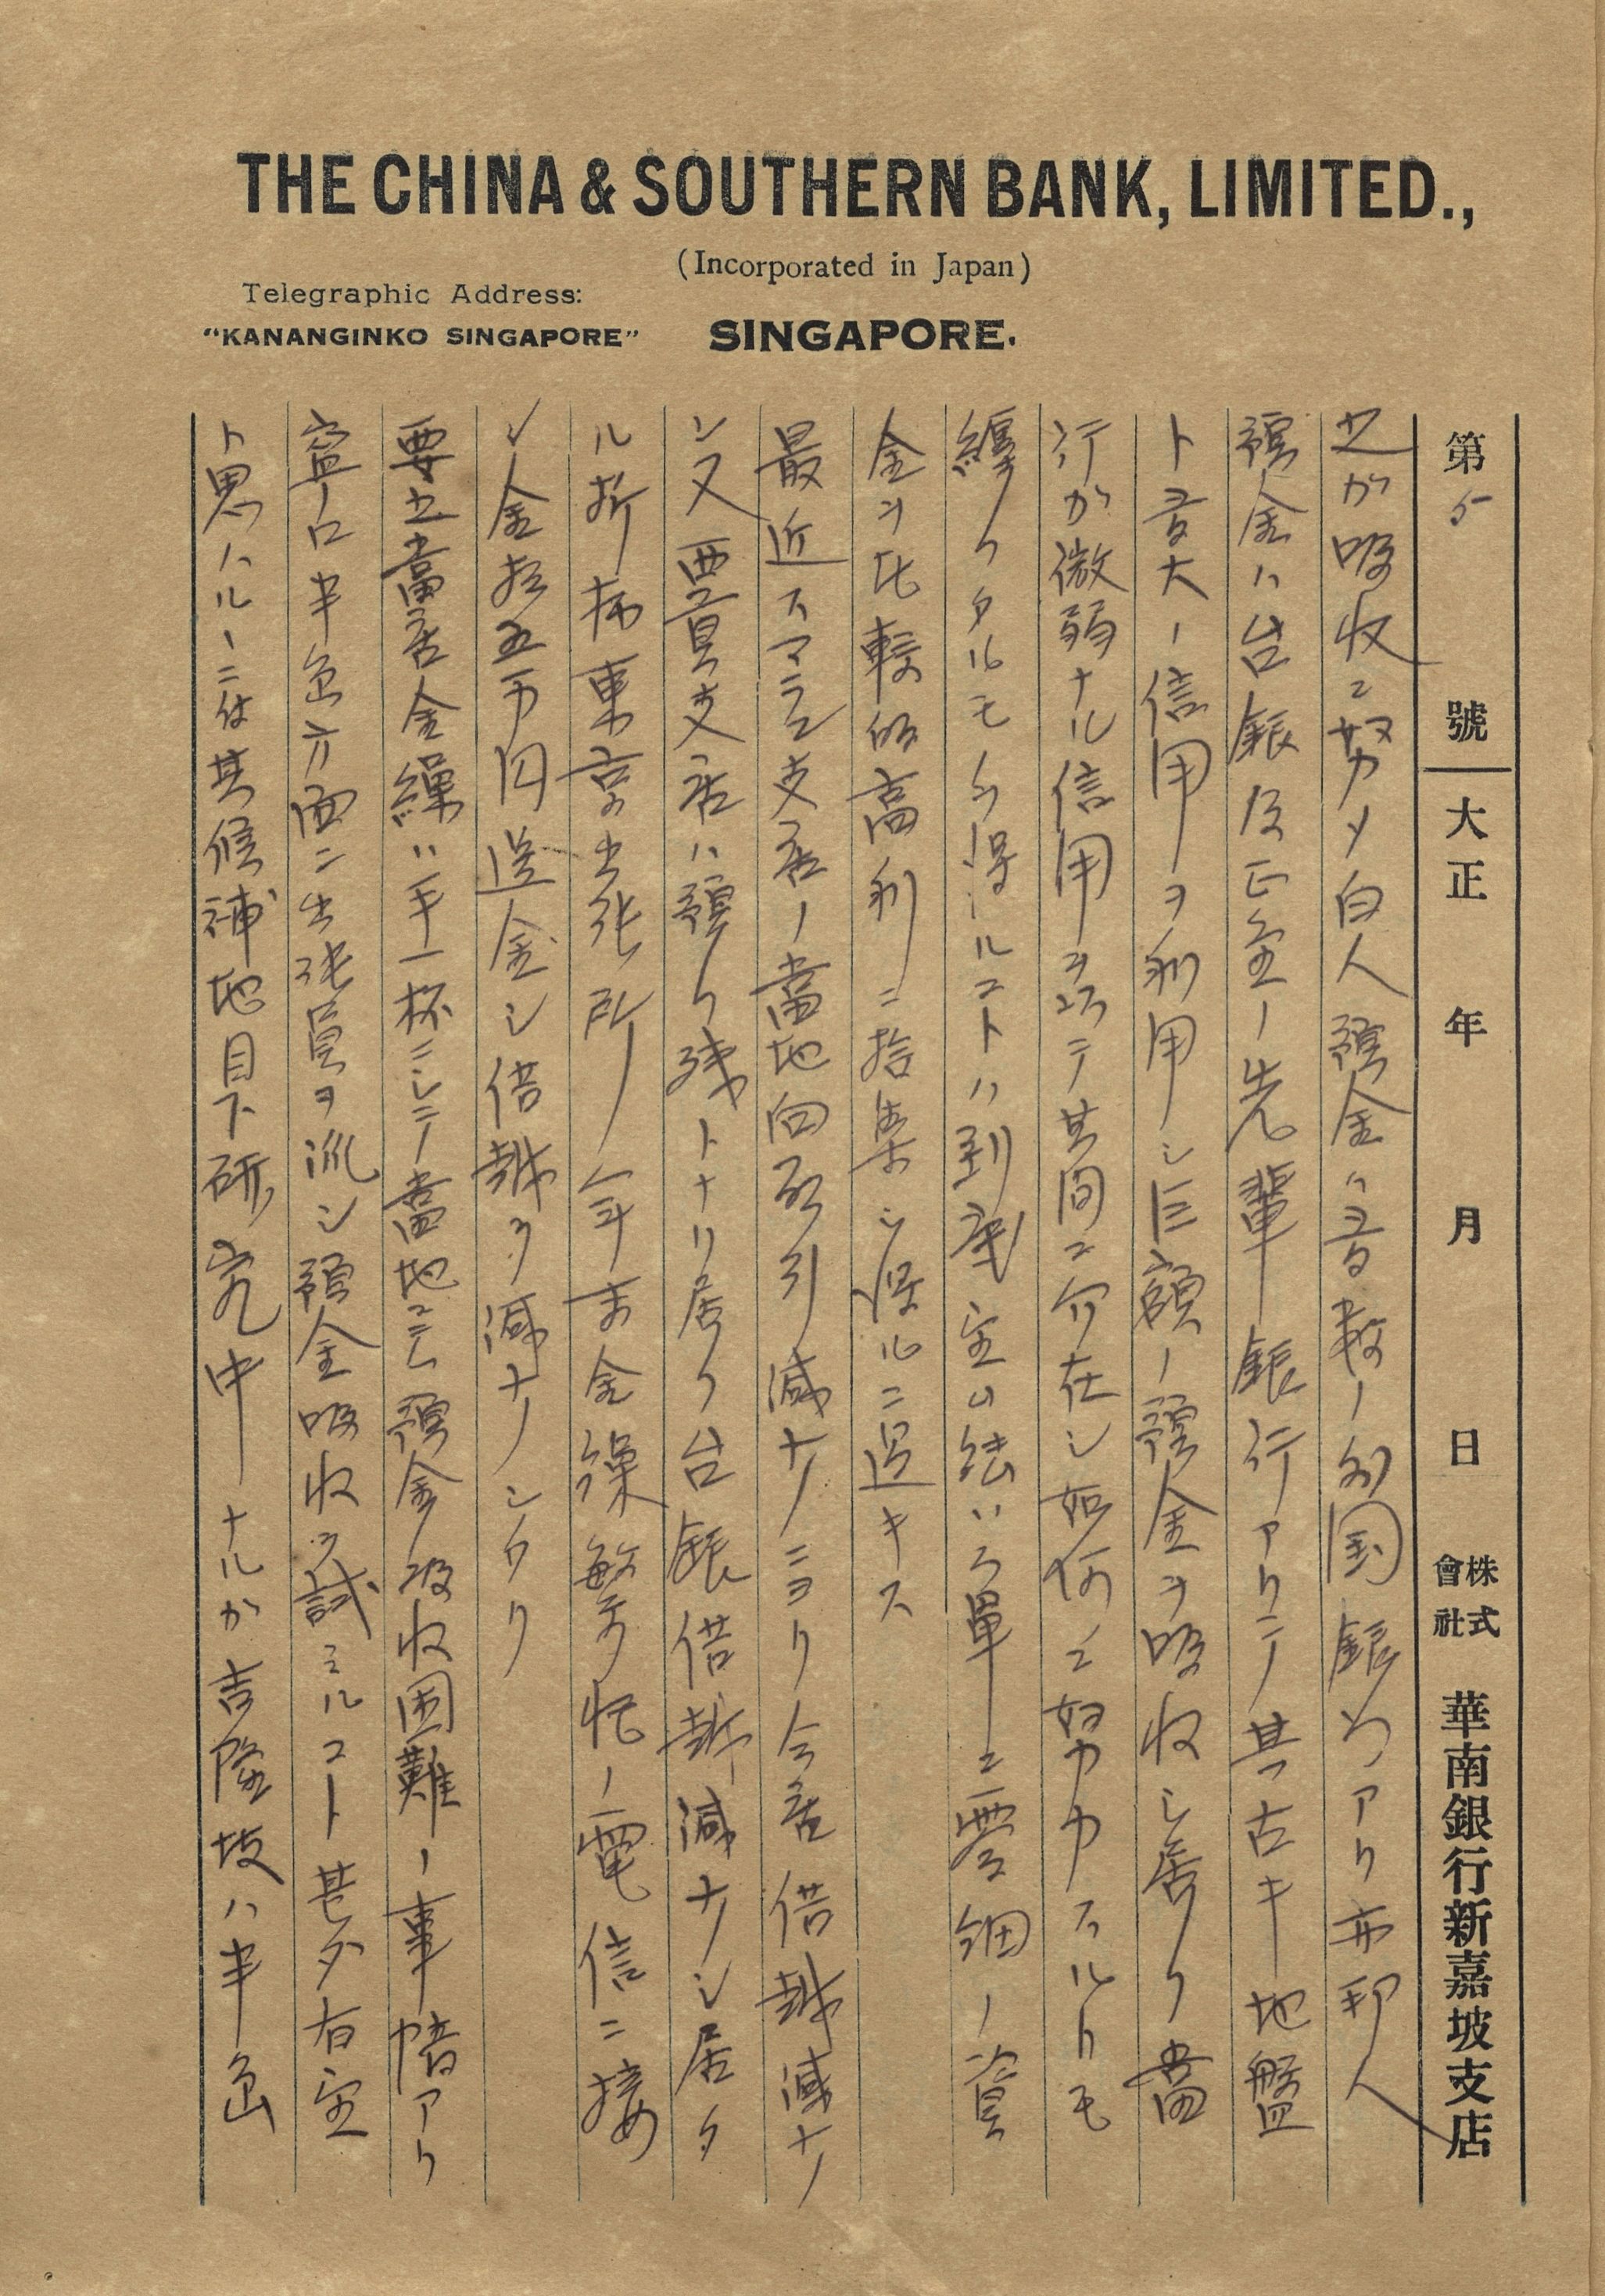 THE CHINA & SOUTHERN BANK, LIMITED.,
(Incorporated in Japan)
Telegraphic Address:
"KANANGINKO SINGAPORE"
SINGAPORE.
第 5 號 大正 年 月 日 株式會社 華南銀行新嘉坡支店
之カ吸收ニ努メ白人預金ハ多数ノ外国銀行アリ亦邦人
預金ハ台銀及正金ノ先輩銀行アリテ其古キ地盤
ト多大ノ信用ヲ利用シ巨額ノ預金ヲ吸收シ居リ當
行カ微弱ナル信用ヲ以テ其間ニ介在シ如何ニ努力スルトモ
纏リタルモノヲ得ルコトハ到底望ム能ハス單ニ零細ノ資
金ヲ比較的高利ニ拾集シ得ルニ過キス
最近スマラン支店ノ當地向取引減少ニヨリ今店借越減少
シ又西貢支店ハ預ケ残トナリ居リ台銀借越減少シ居タ
ル折柄東京出張所ノ年末金繰繁忙ノ電信ニ接
シ金拾五万円送金シ借越ヲ減少シタリ
要之當店金繰ハ手一杯ニシテ當地ニテ預金吸收困難ノ事情アリ
寧ロ半島方面ニ出張員ヲ派シ預金吸收ヲ試ミルコト甚タ有望
ト思ハルルニ付其候補地目下研究中ナルカ吉隆坡ハ半島